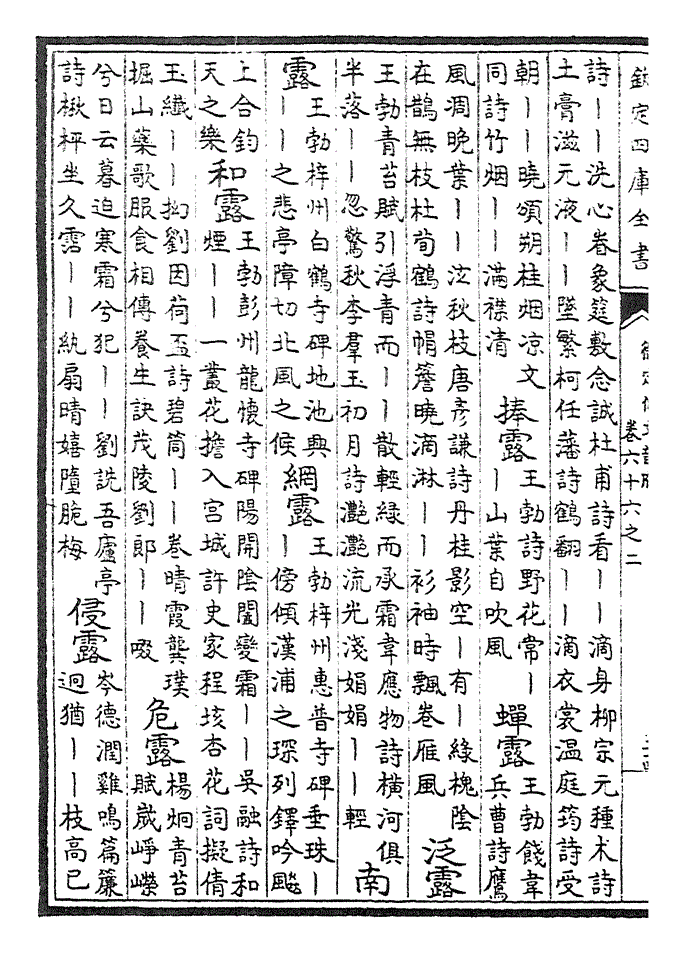 欽定四庫全書
御定佩文韻府
卷六十六之二
詩――洗心眷象筵敷念誠杜甫詩看――滴身柳宗元種朮詩
土膏滋元液――墜繁柯任藩詩鶴翻――滴衣裳温庭筠詩受
朝――曉頌朔桂烟凉文
同詩竹烟――滿襟清
捧露
王勃詩野花常―
―山葉自吹風
蟬露
王勃餞韋
兵曹詩鷹
風凋晚葉――泣秋枝唐彦謙詩丹桂影空―有―緑槐陰
在鵲無枝杜荀鶴詩帽簷曉滴淋――衫袖時飄卷雁風
泛露
王勃青苔賦引浮青而――散輕緑而承霜韋應物詩横河俱
半落――忽驚秋李羣玉初月詩灔灔流光淺娟娟――輕
南
露
王勃梓州白鶴寺碑地池興
――之悲亭障切北風之候
網露
王勃梓州惠普寺碑垂珠―
―傍傾漢浦之琛列鐸吟飈
上合鈞
天之樂
和露
王勃彭州龍懷寺碑陽開陰闔變霜――吳融詩和
煙――一叢花擔入宮城許史家程垓杏花詞擬倩
玉纖――拗劉因荷盃詩碧筒――卷晴霞龔璞
掘山藥歌服食相傳養生訣茂陵劉郎――啜
危露
楊炯青苔
賦嵗崢嶸
兮日云暮迫寒霜兮犯――劉詵吾廬亭
詩楸枰坐久霑――紈扇晴嬉墮脆梅
侵露
岑德潤雞鳴篇簾
迥猶――枝高已